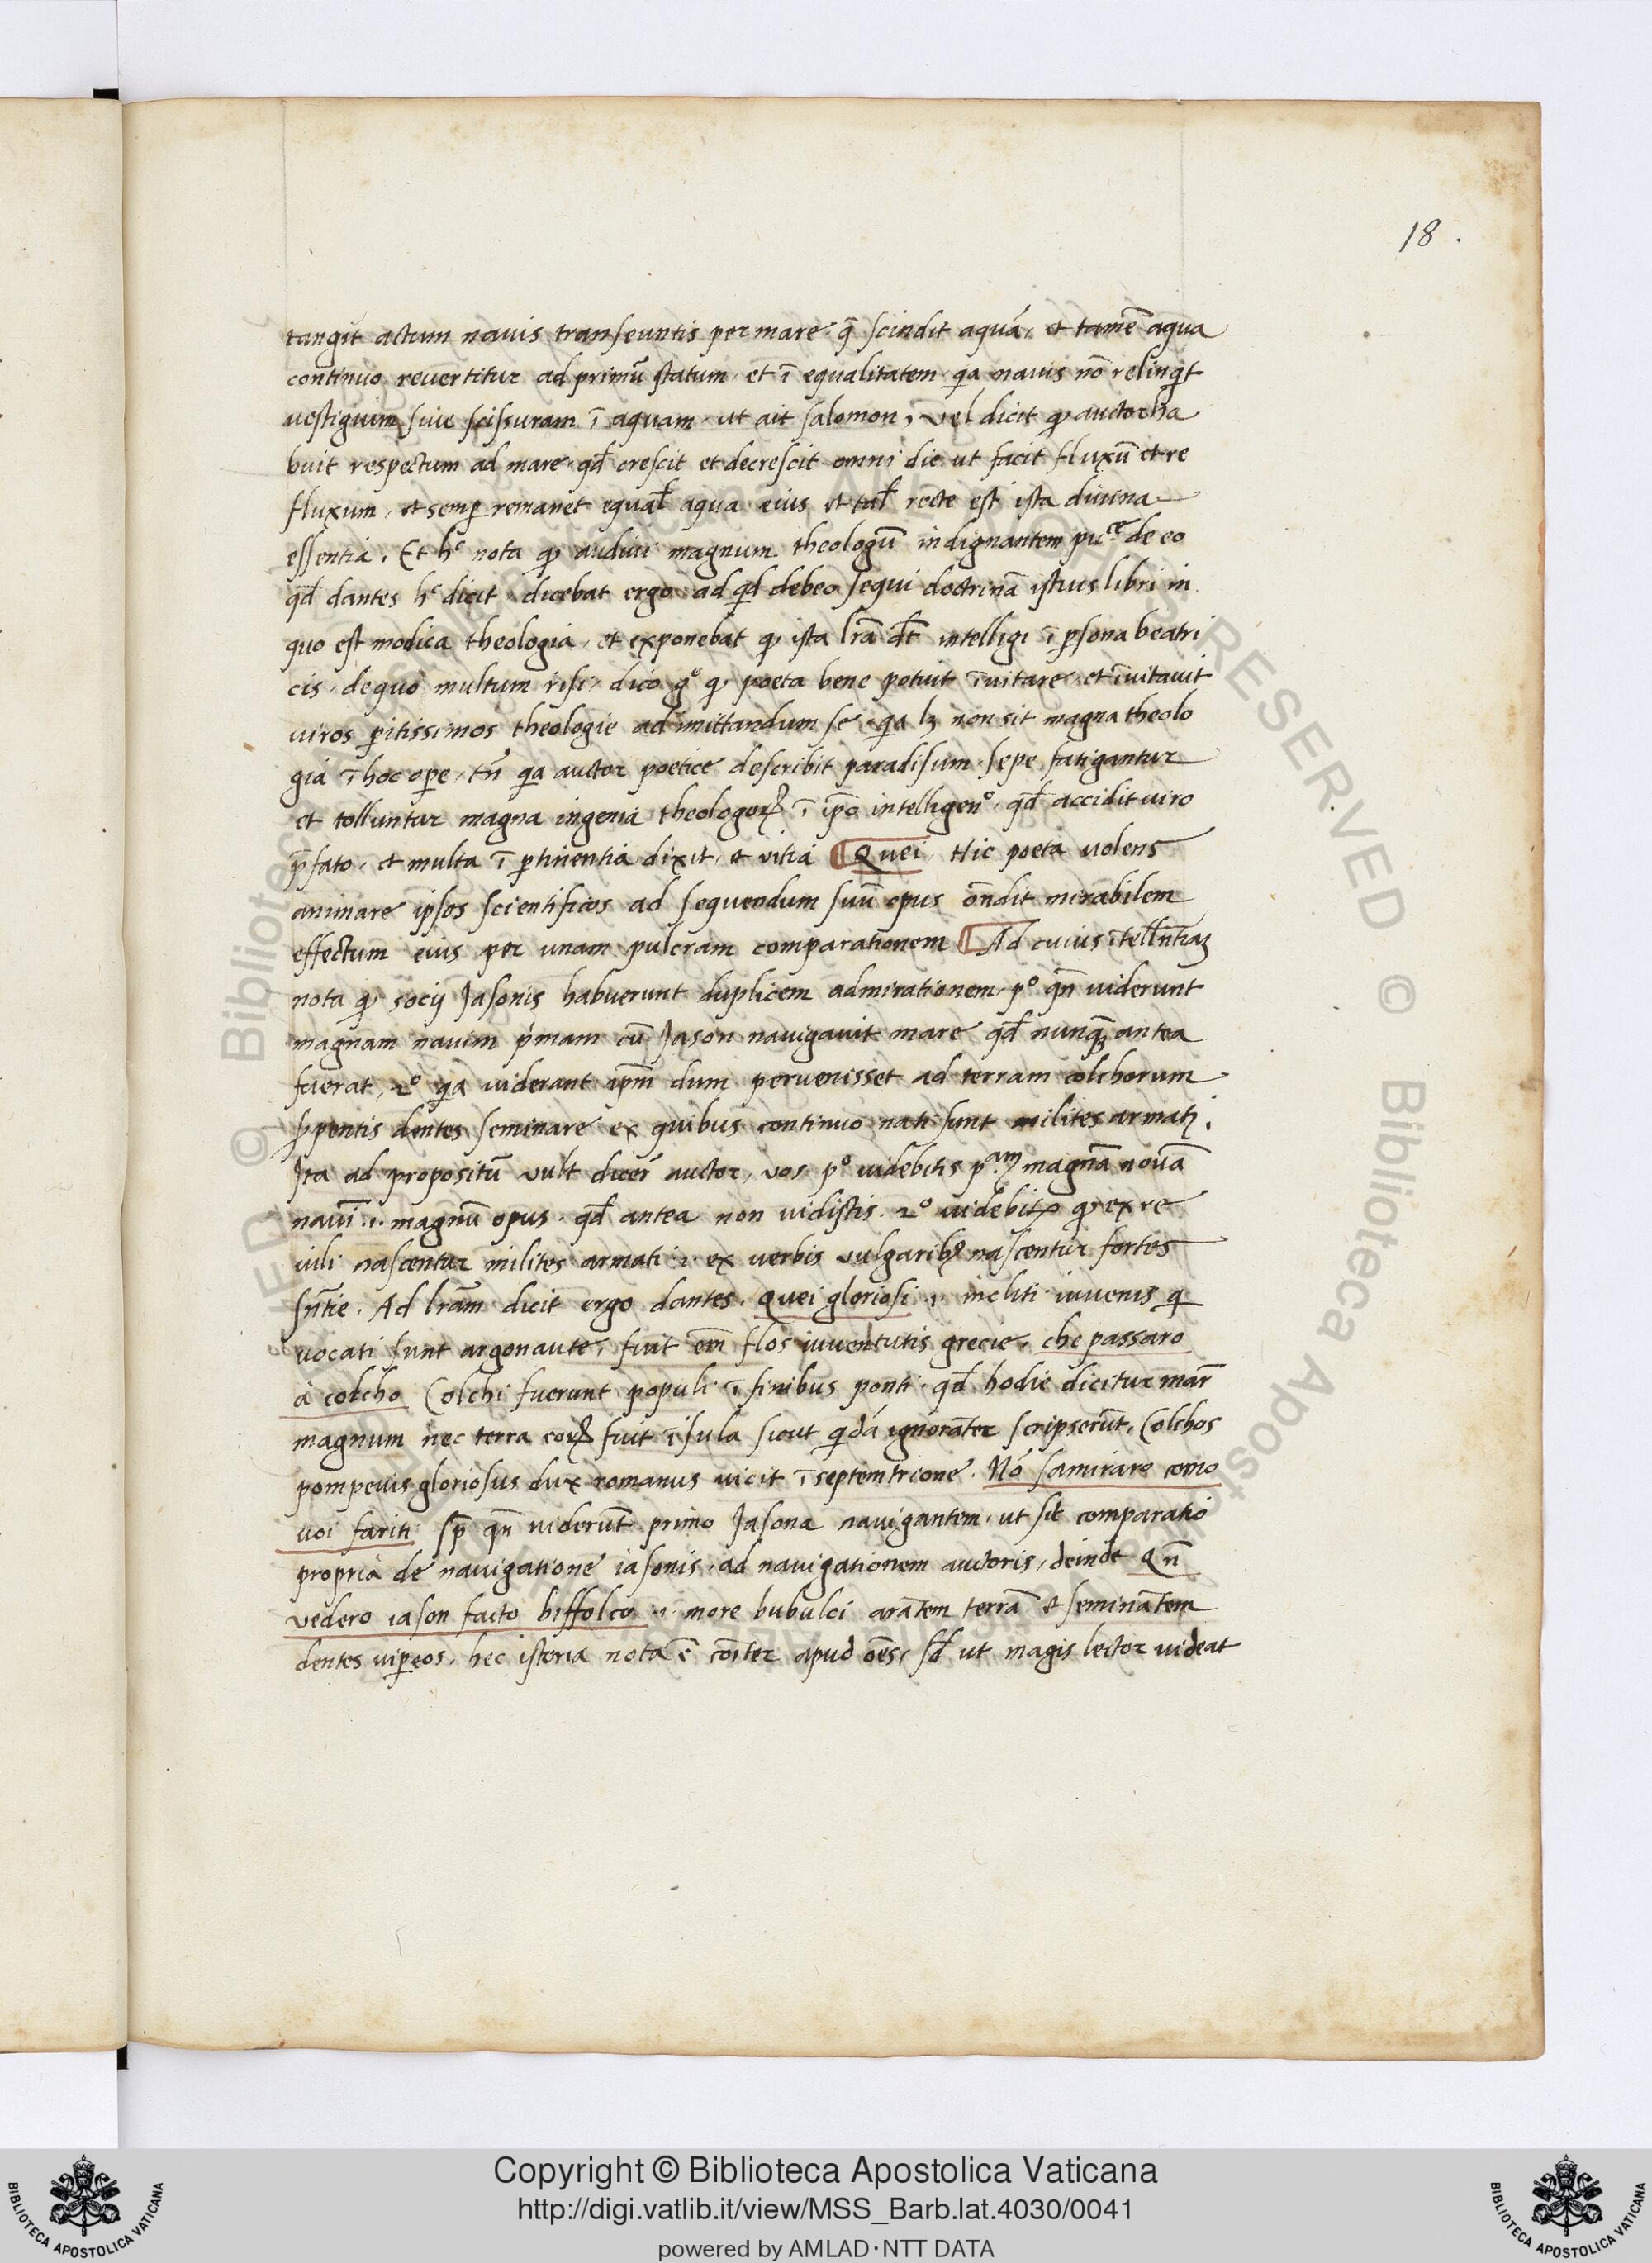 18.
tangit actum navis transeuntis per mare q̄ scindit aquá. et tamē aqua
continuo revertitur ad primū statum. et ī equalitatem. qa navis nō relinqt
vestigium sive scissuram ī aquam. ut ait salomon, vel dicit ꝙ auctor ha
buit respectum ad mare. qd̄ crescit et decrescit omni die ut facit fluxū et re
fluxum, et semꝑ remanet equał aqua eius et tał recte est ista divina
essentia. Et hᶜ nota ꝙ audivi magnum theologū indignantem de eo
qd̄ dantes hᶜ dicit. dicebat ergo ad qd debeo sequi doctrinā istius libri in
quo est modica theologia, et exponebat ꝙ ista lrā dt̄ intelligi ī ꝑsona beatri
cis. de quo multum risi. dico gº ꝙ poeta bene potuit īvitare. et īvitavit
viros ꝑitissimos theologie ad imittandum se. qa lꝫ non sit magna theolo
gia ī hoc oꝑe. tn̄ qa auctor poetice describit paradisum. sepe fatigantur
et tolluntur magna ingenia theologoꝝ ī ip̄o intelligenº. qd̄ accidit viro
p̄fato. et multa ī ꝑtinentia dixit. et vitia Quei. Hic poeta volens
animare ipsos scientificos ad sequendum suū opus ōndit mirabilem
effectum eius per unam pulcram comparationem Ad cuius ītelln̄tiaꝫ
nota ꝙ socij Jasonis habuerunt duplicem admirationem. pº qn̄ viderunt
magnam navim p'mam cū Jason navigavit mare qd̄ nunqꝫ antea
fuerat, 2º qa viderant ip̄m dum pervenisset ad terram colchorum
sꝑpentis dentes seminare ex quibus continuo nati sunt milites armatj.
Ita ad propositū vult dicer̄ auctor, vos pº videbitis pᵃᵐ magnā novā
navī .i. magnū opus. qd̄ antea non vidistis. 2º videbit ꝙ ex re
vili nascentur milites armati .i. ex verbis vulgaribꝫ nascentur fortes
sn̄tie. Ad lrām dicit ergo dantes. Quei gloriosi .i. incliti iuvenis q
vocati sunt argonaute, fuit em̄ flos iuventutis grecie. che passaro
a colcho Colchi fuerunt populi ī finibus ponti. qd̄ hodie dicitur mar̄
magnum nec terra eoꝝ fuit īsula sicut qdá ignorāter scripserūt. Colchos
pompeius gloriosus dux romanus vicit ī septemtrione. Nō samiraro como
voi fariti sꝑ qn̄ viderūt primo Jasona navigantem. ut sit comparatio
propria de navigatione iasonis. ad navigationem auctoris, deinde Qn̄
vedero iason facto biffolco .i. more bubulci arātem terrā et seminātem
dentes viꝑeos. hec istoria nota ē cōiter apud oēs, sd̄ ut magis lector videat
Copyright © Biblioteca Apostolica Vaticana
http://digi.vatlib.it/view/MSS_Barb.lat.4030/0041
powered by AMLAD·NTT DATA
BIBLIOTECA APOSTOLICA VATICANA
BIBLIOTECA APOSTOLICA VATICANA